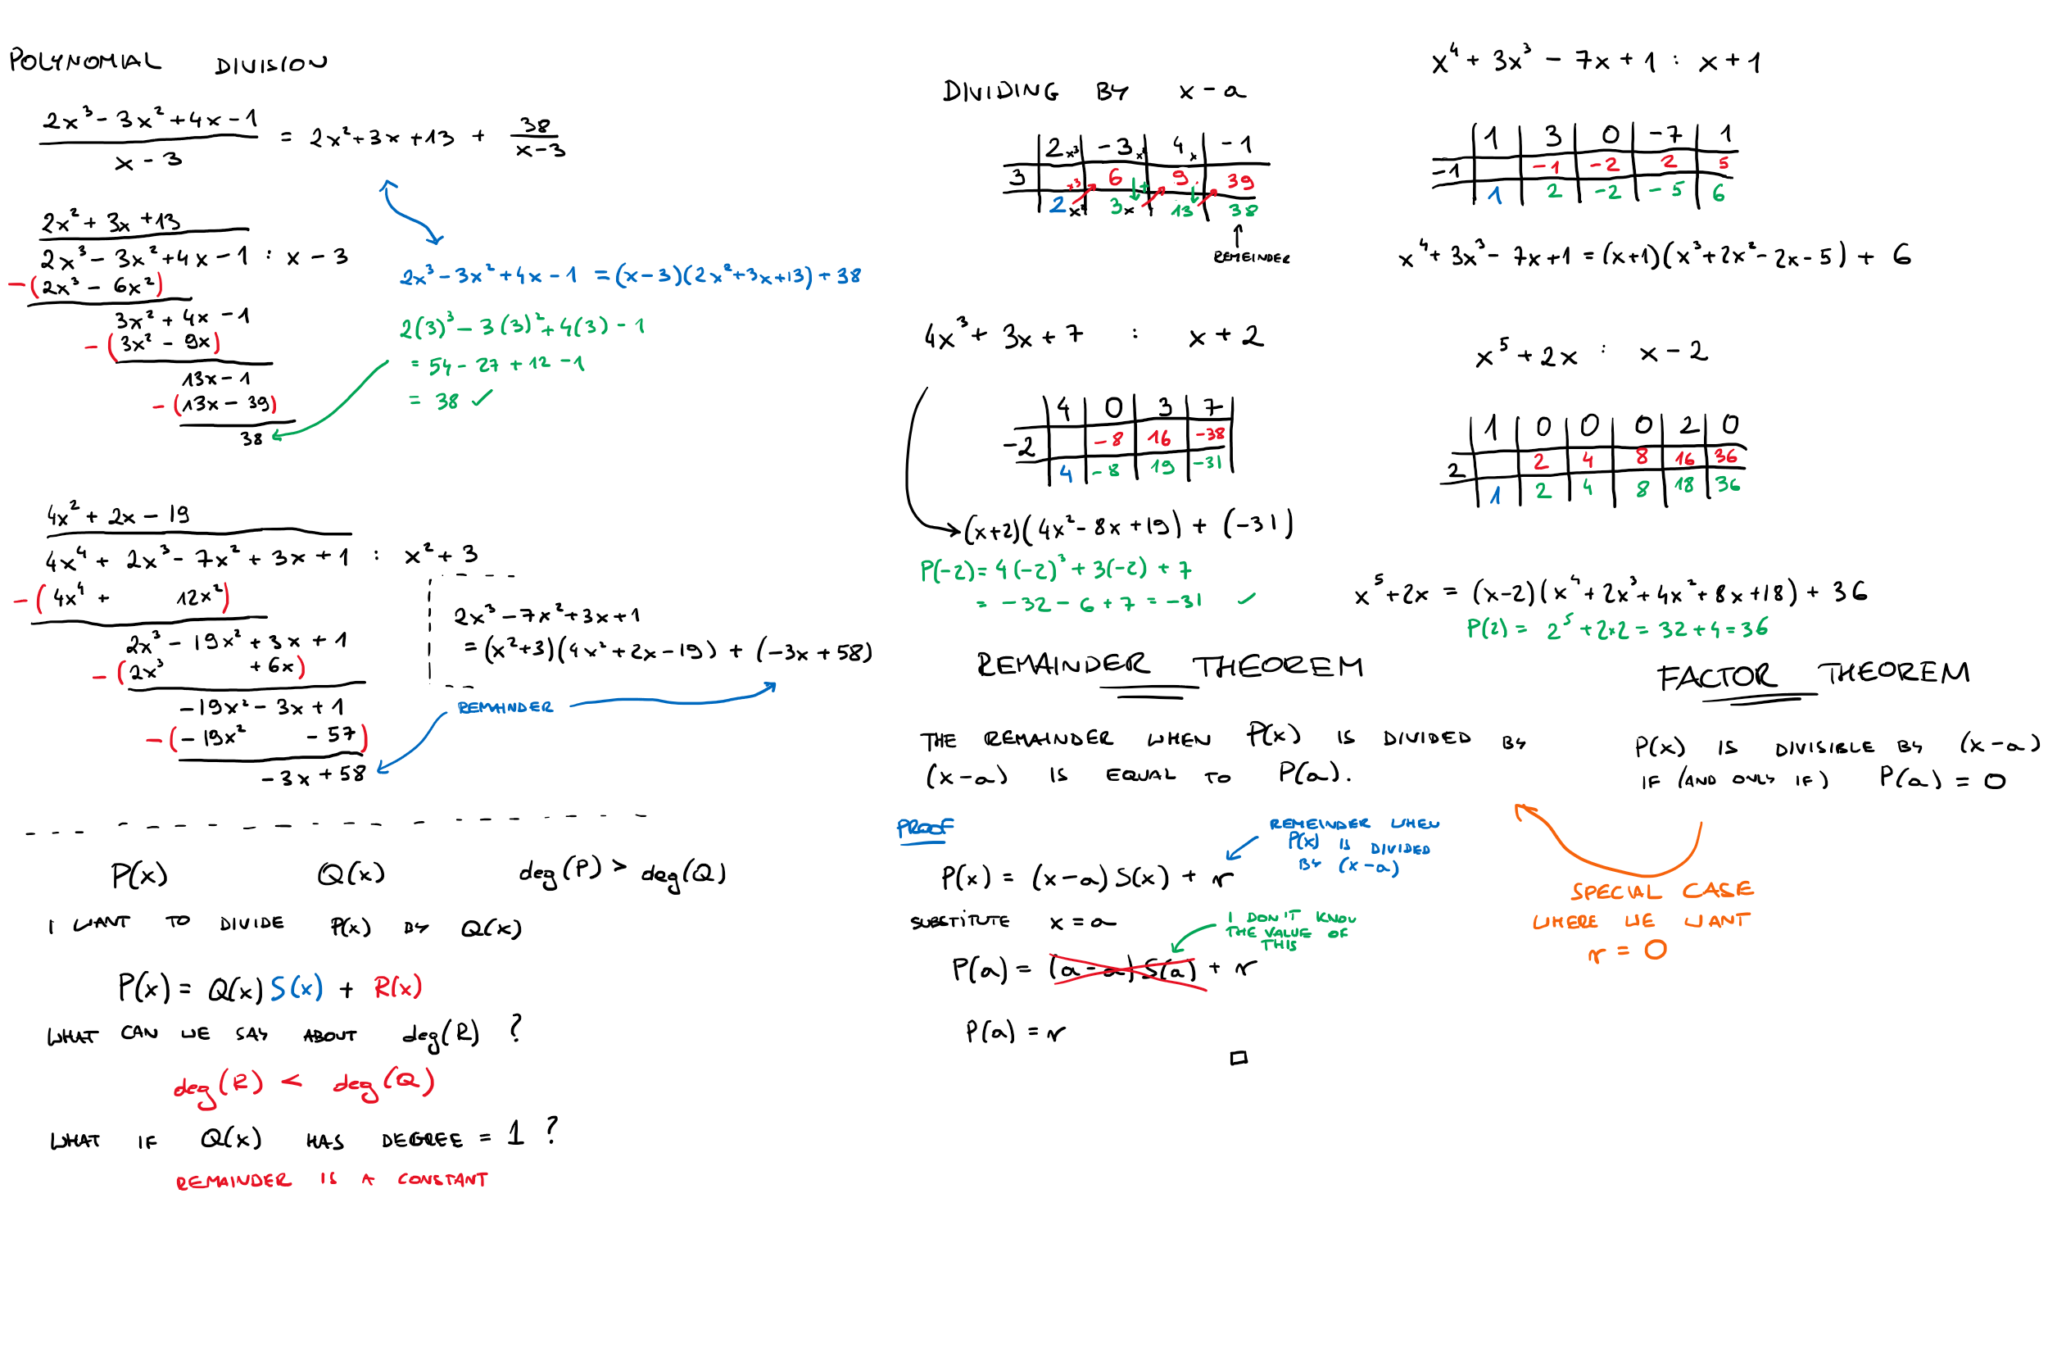 POLYNOMIAL DIVISION
2x³ - 3x² + 4x - 1
x - 3
= 2x² + 3x + 13 + 38/(x - 3)
2x² + 3x + 13
2x³ - 3x² + 4x - 1 : x - 3
- (2x³ - 6x²)
3x² + 4x - 1
- (3x² - 9x)
13x - 1
- (13x - 39)
38
2x³ - 3x² + 4x - 1 = (x - 3)(2x² + 3x + 13) + 38
2(3)³ - 3(3)² + 4(3) - 1
= 54 - 27 + 12 - 1
= 38 ✓
4x² + 2x - 19
4x⁴ + 2x³ - 7x² + 3x + 1 : x² + 3
- (4x⁴ + 12x²)
2x³ - 19x² + 3x + 1
- (2x³ + 6x)
-19x² - 3x + 1
- (-19x² - 57)
-3x + 58
2x³ - 7x² + 3x + 1
= (x² + 3)(4x² + 2x - 19) + (-3x + 58)
REMAINDER
P(x) Q(x) deg(P) > deg(Q)
I WANT TO DIVIDE P(x) BY Q(x)
P(x) = Q(x) S(x) + R(x)
WHAT CAN WE SAY ABOUT deg(R) ?
deg(R) < deg(Q)
WHAT IF Q(x) HAS DEGREE = 1 ?
REMAINDER IS A CONSTANT
DIVIDING BY x - a
2x³ -3x 4x -1
3 x³ 6 + 9 39
2x² 3x 13 38
REMEINDER
4x³ + 3x + 7 : x + 2
4 0 3 7
-2 -8 16 -38
4 -8 19 -31
(x+2)(4x² - 8x + 19) + (-31)
P(-2) = 4(-2)³ + 3(-2) + 7
= -32 - 6 + 7 = -31 ✓
REMAINDER THEOREM
THE REMAINDER WHEN P(x) IS DIVIDED BY
(x-a) IS EQUAL TO P(a).
PROOF
REMEINDER WHEN
P(x) IS DIVIDED
BY (x-a)
P(x) = (x-a) S(x) + r
SUBSTITUTE x = a
I DON'T KNOW
THE VALUE OF
THIS
P(a) = (a-a) S(a) + r
P(a) = r
□
x⁴ + 3x³ - 7x + 1 : x + 1
1 3 0 -7 1
-1 -1 -2 2 5
1 2 -2 -5 6
x⁴ + 3x³ - 7x + 1 = (x+1)(x³ + 2x² - 2x - 5) + 6
x⁵ + 2x : x - 2
1 0 0 0 2 0
2 2 4 8 16 36
1 2 4 8 18 36
x⁵ + 2x = (x-2)(x⁴ + 2x³ + 4x² + 8x + 18) + 36
P(2) = 2⁵ + 2×2 = 32 + 4 = 36
FACTOR THEOREM
P(x) IS DIVISIBLE BY (x-a)
IF (AND ONLY IF) P(a) = 0
SPECIAL CASE
WHERE WE WANT
r = 0